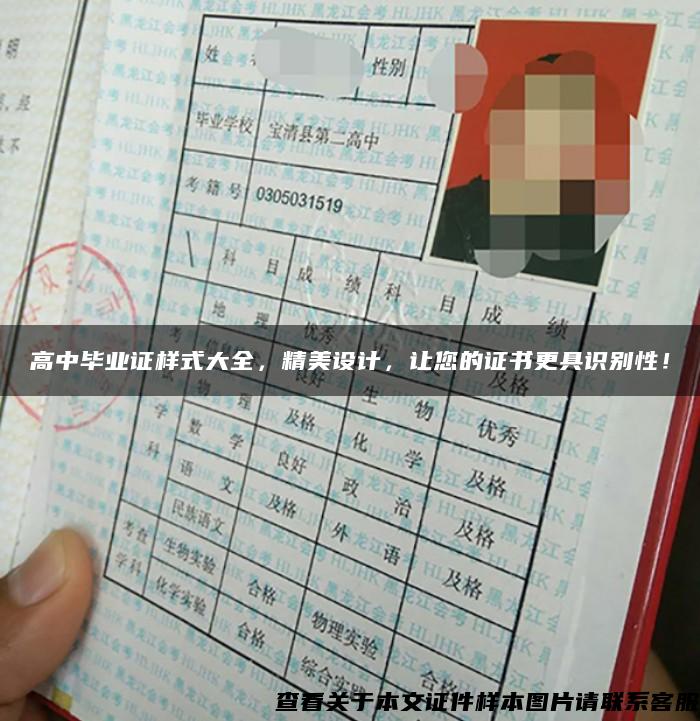 姓
性别
毕业学校 宝清县第二高中
考籍号 0305031519
科目 成绩 科目 成绩
地理 优秀
高中毕业证样式大全，精美设计，让您的证书更具识别性！
良好 生物 优秀
物理 及格 化学 及格
数学 良好 政治 及格
语文 及格 外语 及格
民族语文
考查学科
生物实验 合格 物理实验 合格
化学实验 合格 综合实
黑龙江会考 HLJHK
查看关于本文证件样本图片请联系客服